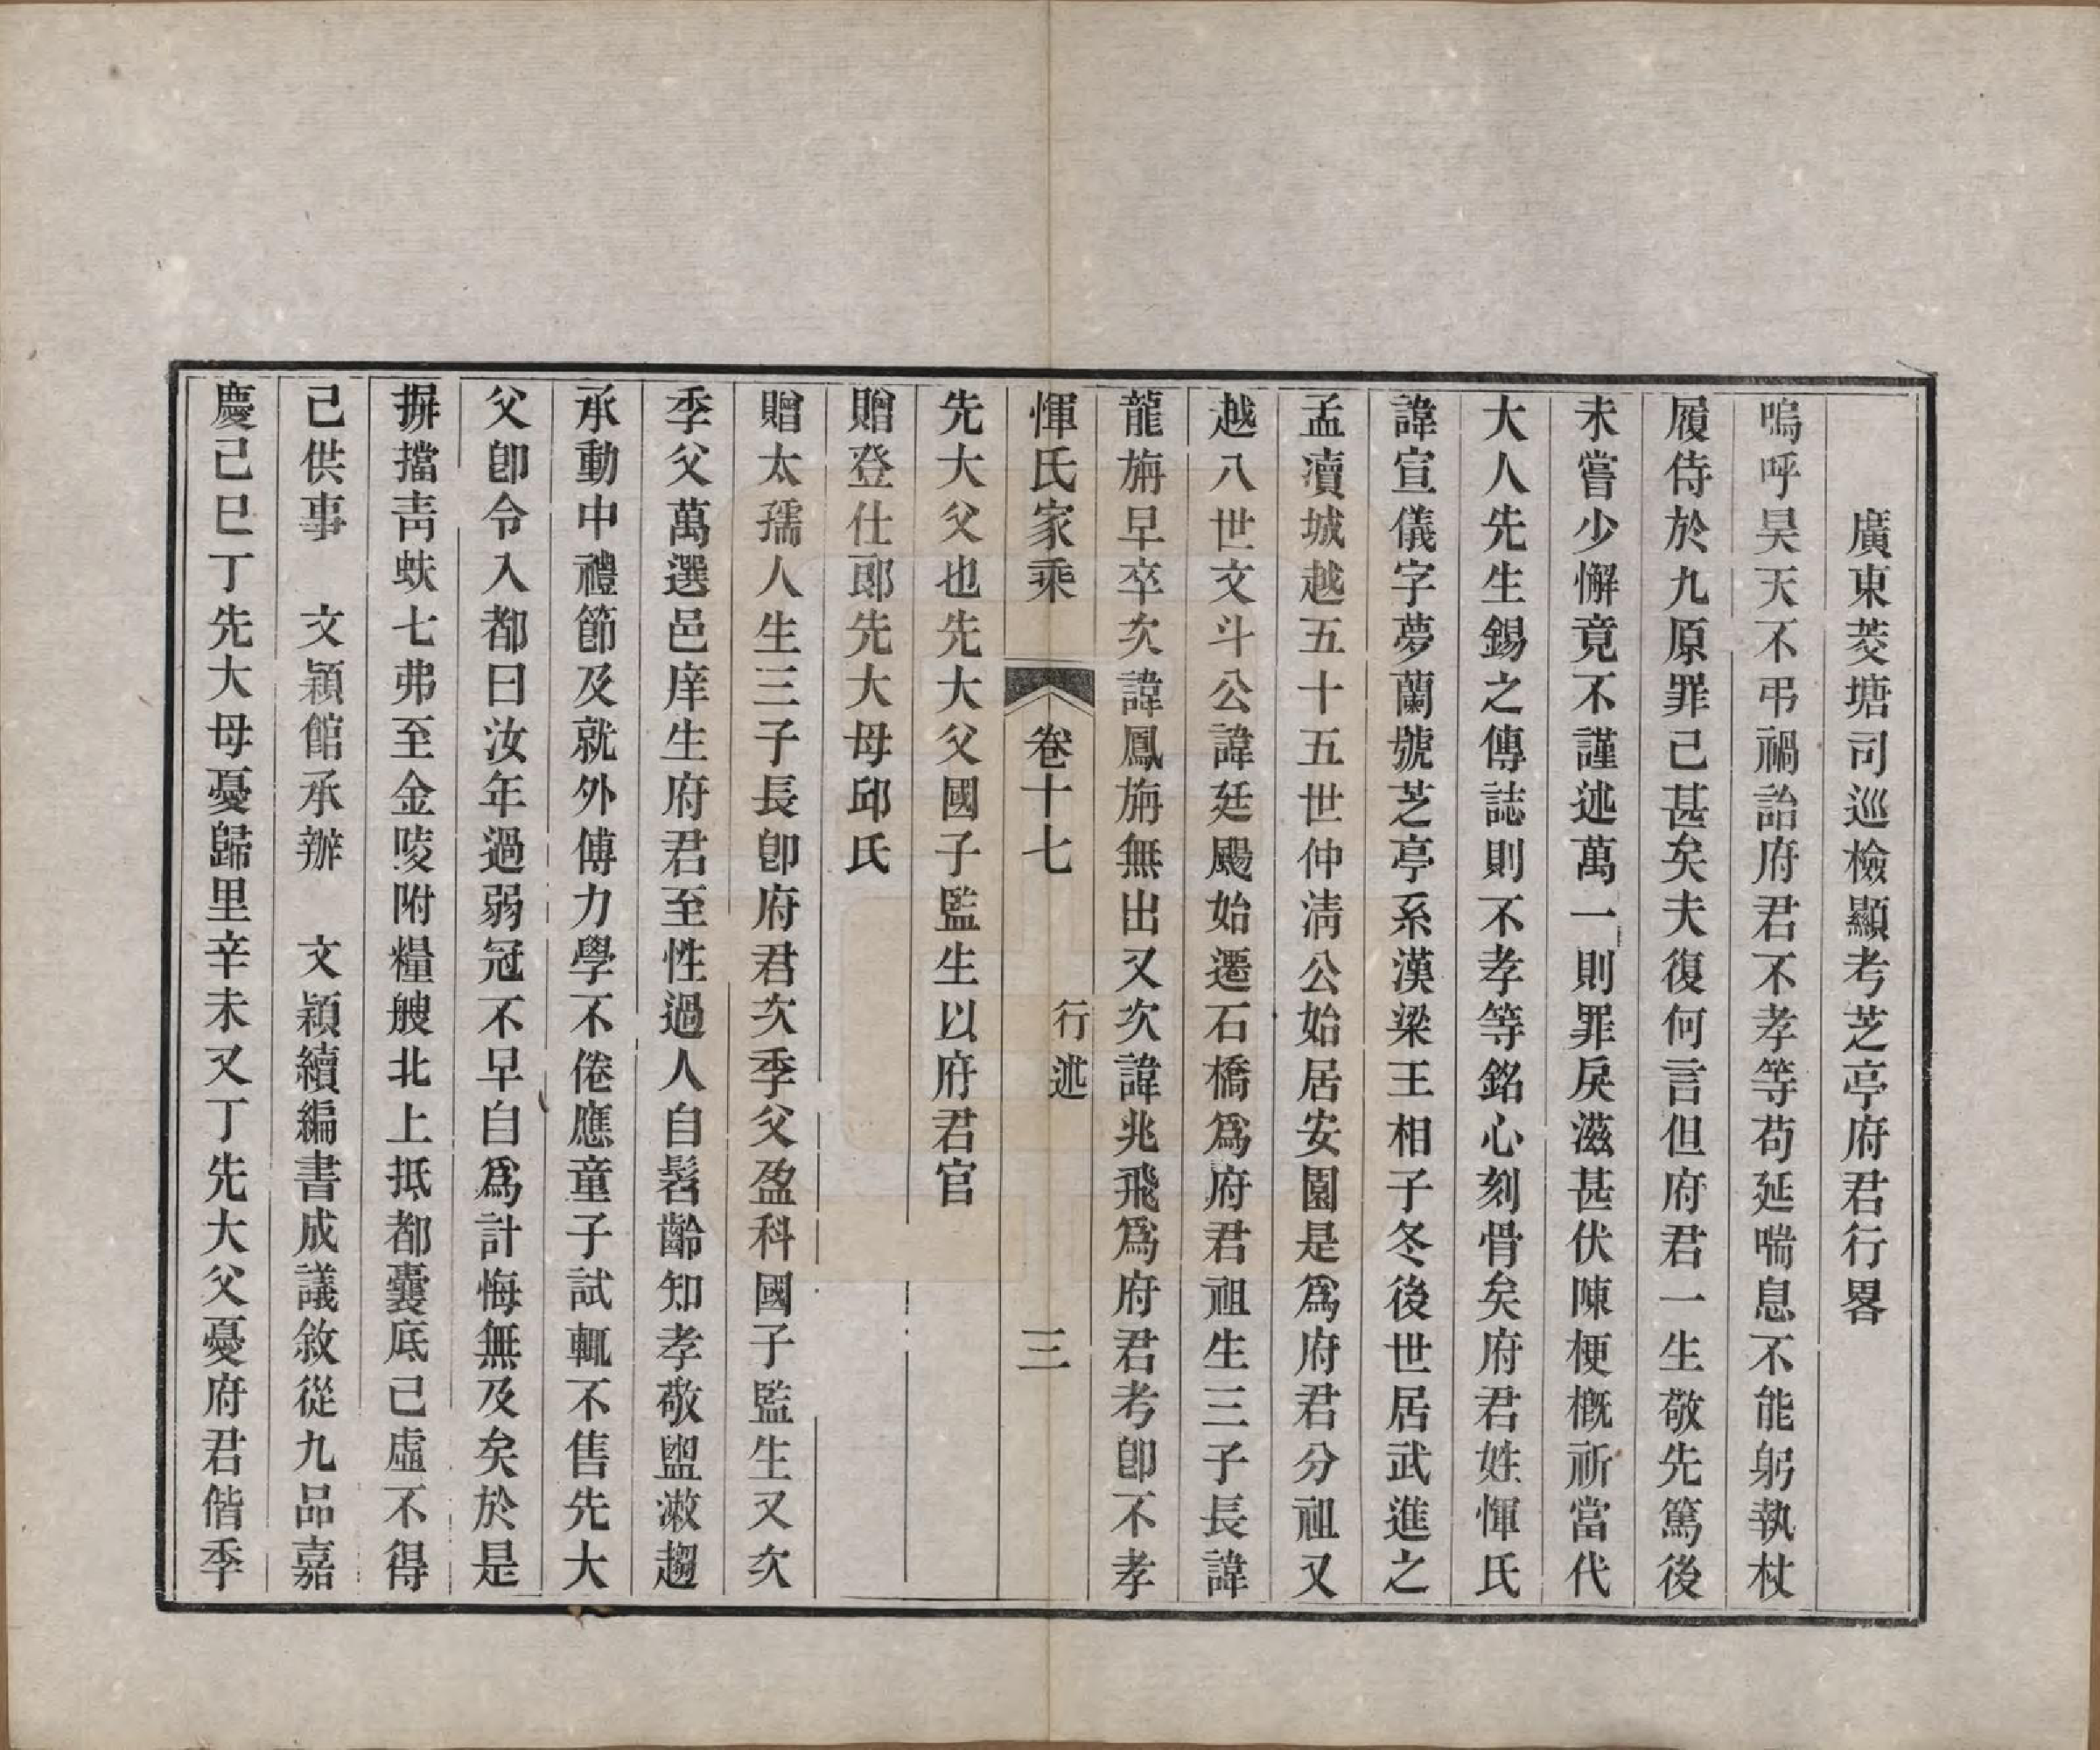 廣東茭塘司巡檢顯考芝亭府君行畧
嗚呼昊天不弔禍詒府君不孝等苟延喘息不能躬執杖
履侍於九原罪己甚矣夫復何言但府君一生敬先篤後
未嘗少懈竟不謹述萬一則罪戾滋甚伏陳梗槪祈當代
大人先生錫之傳誌則不孝等銘心刻骨矣府君姓惲氏
諱宣儀字夢蘭號芝亭系漢梁王相子冬後世居武進之
孟瀆城越五十五世仲淸公始居安園是爲府君分祖又
越八世文斗公諱廷颺始遷石橋爲府君祖生三子長諱
龍旃早卒次諱鳳旃無出又次諱兆飛爲府君考卽不孝
惲氏家乘　卷十七　行述　三
先大父也先大父國子監生以府君官
贈登仕郎先大母邱氏
贈太孺人生三子長卽府君次季父盈科國子監生又次
季父萬選邑庠生府君至性過人自髫齡知孝敬盥漱趨
承動中禮節及就外傅力學不倦應童子試輒不售先大
父卽令入都曰汝年過弱冠不早自爲計悔無及矣於是
摒擋靑蚨七弗至金陵附糧艘北上抵都囊底已虛不得
己供事　文穎館承辦　文穎續編書成議敘從九品嘉
慶己巳丁先大母憂歸里辛未又丁先大父憂府君偕季